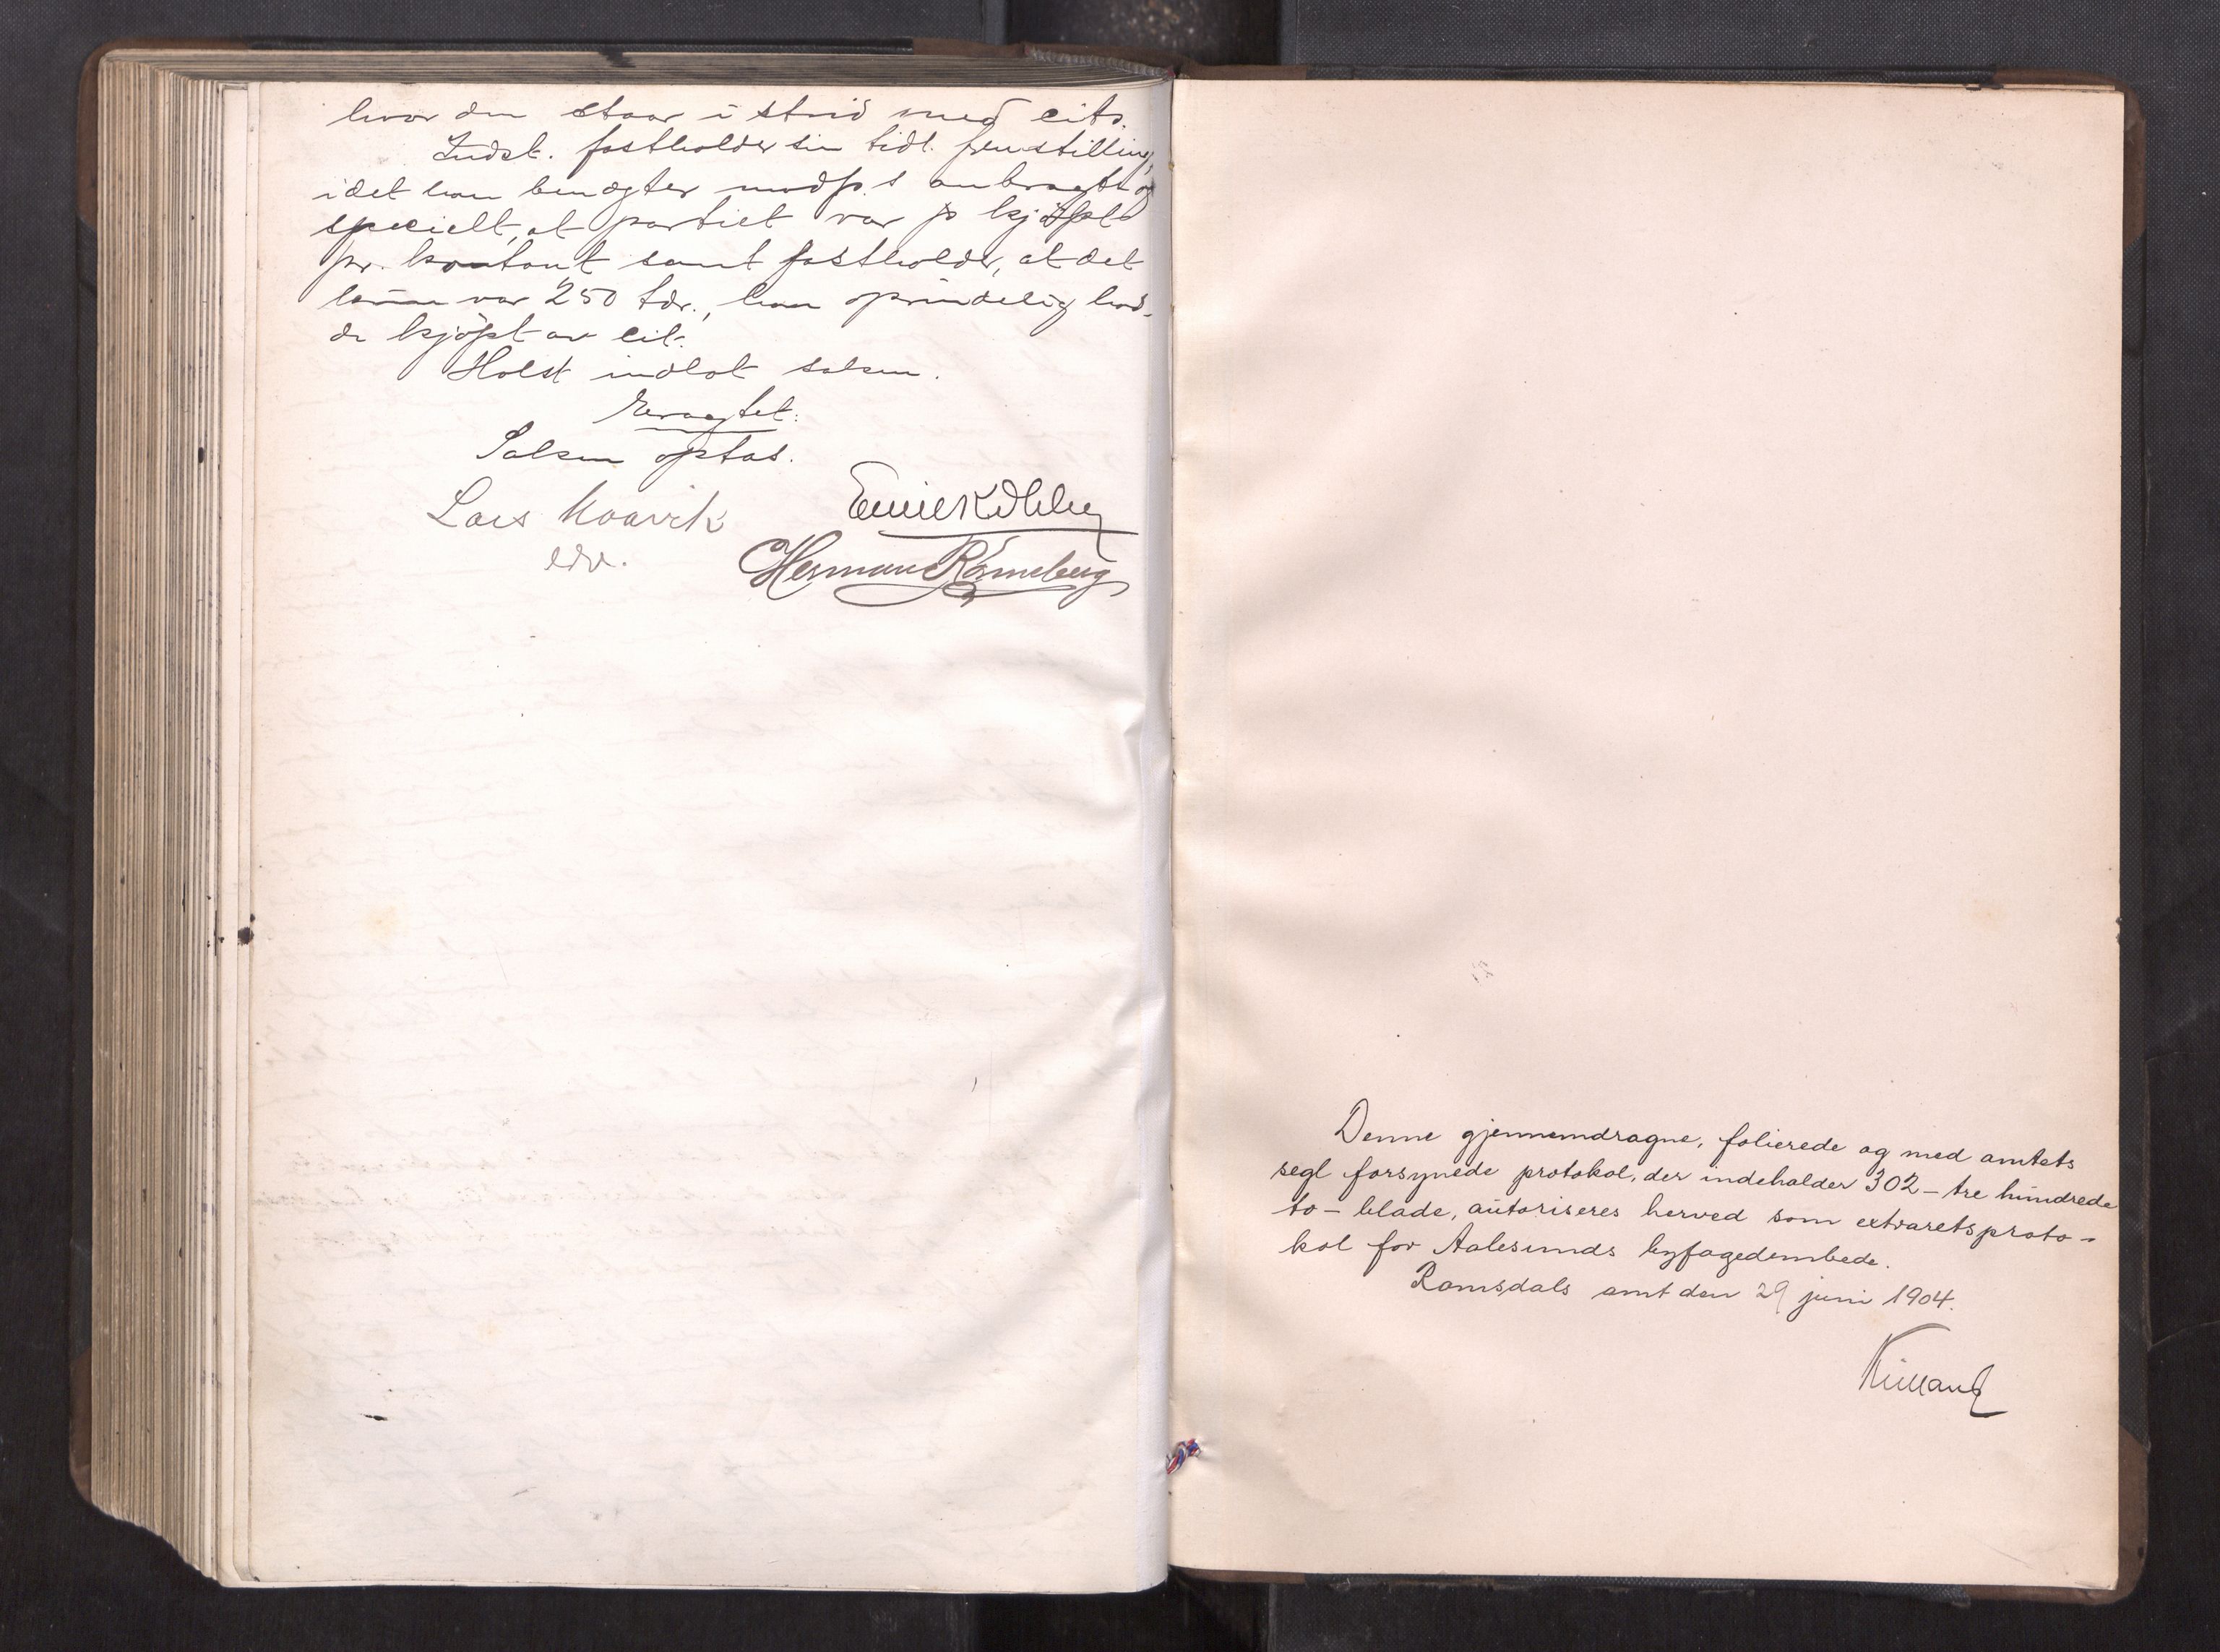 hvor den staar i strid med cits.
Indst. fastholder sin tidl. fremstilling,
idet han benægter modp.s anbragte og
specielt, at partiet var kjöpt
pr. kontant samt fastholder, at det
var 250 tdr., han oprindelig had-
de kjöpt av cit.
Holst indlot saken.
Eragtet:
Saken optas.
Lars Maavik
edv.
Herman Rönneberg
Denne gjennemdragne, folierede og med amtets
segl forsynede protokol, der indeholder 302 - tre hundrede
to - blade, autoriseres herved som extraretsproto-
kol for Aalesunds byfogedembede.
Romsdals amt den 29 juni 1904.
Kielland